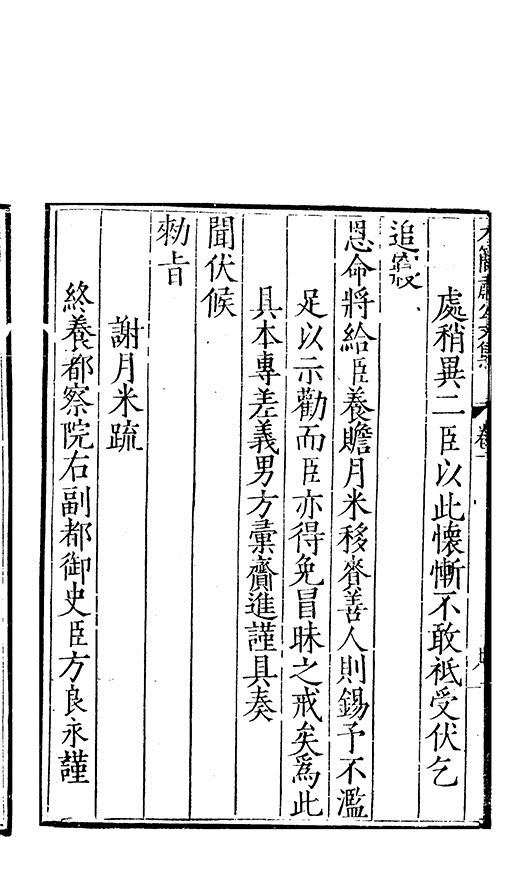 處稍異二臣以此懷慚不敢祗受伏乞
追寢
恩命將給臣養贍月米移賚善人則錫予不濫
足以示勸而臣亦得免冒昧之戒矣爲此
具本專差義男方彙齎進謹具奏
聞伏候
勑旨
謝月米疏
終養都察院右副都御史臣方良永謹